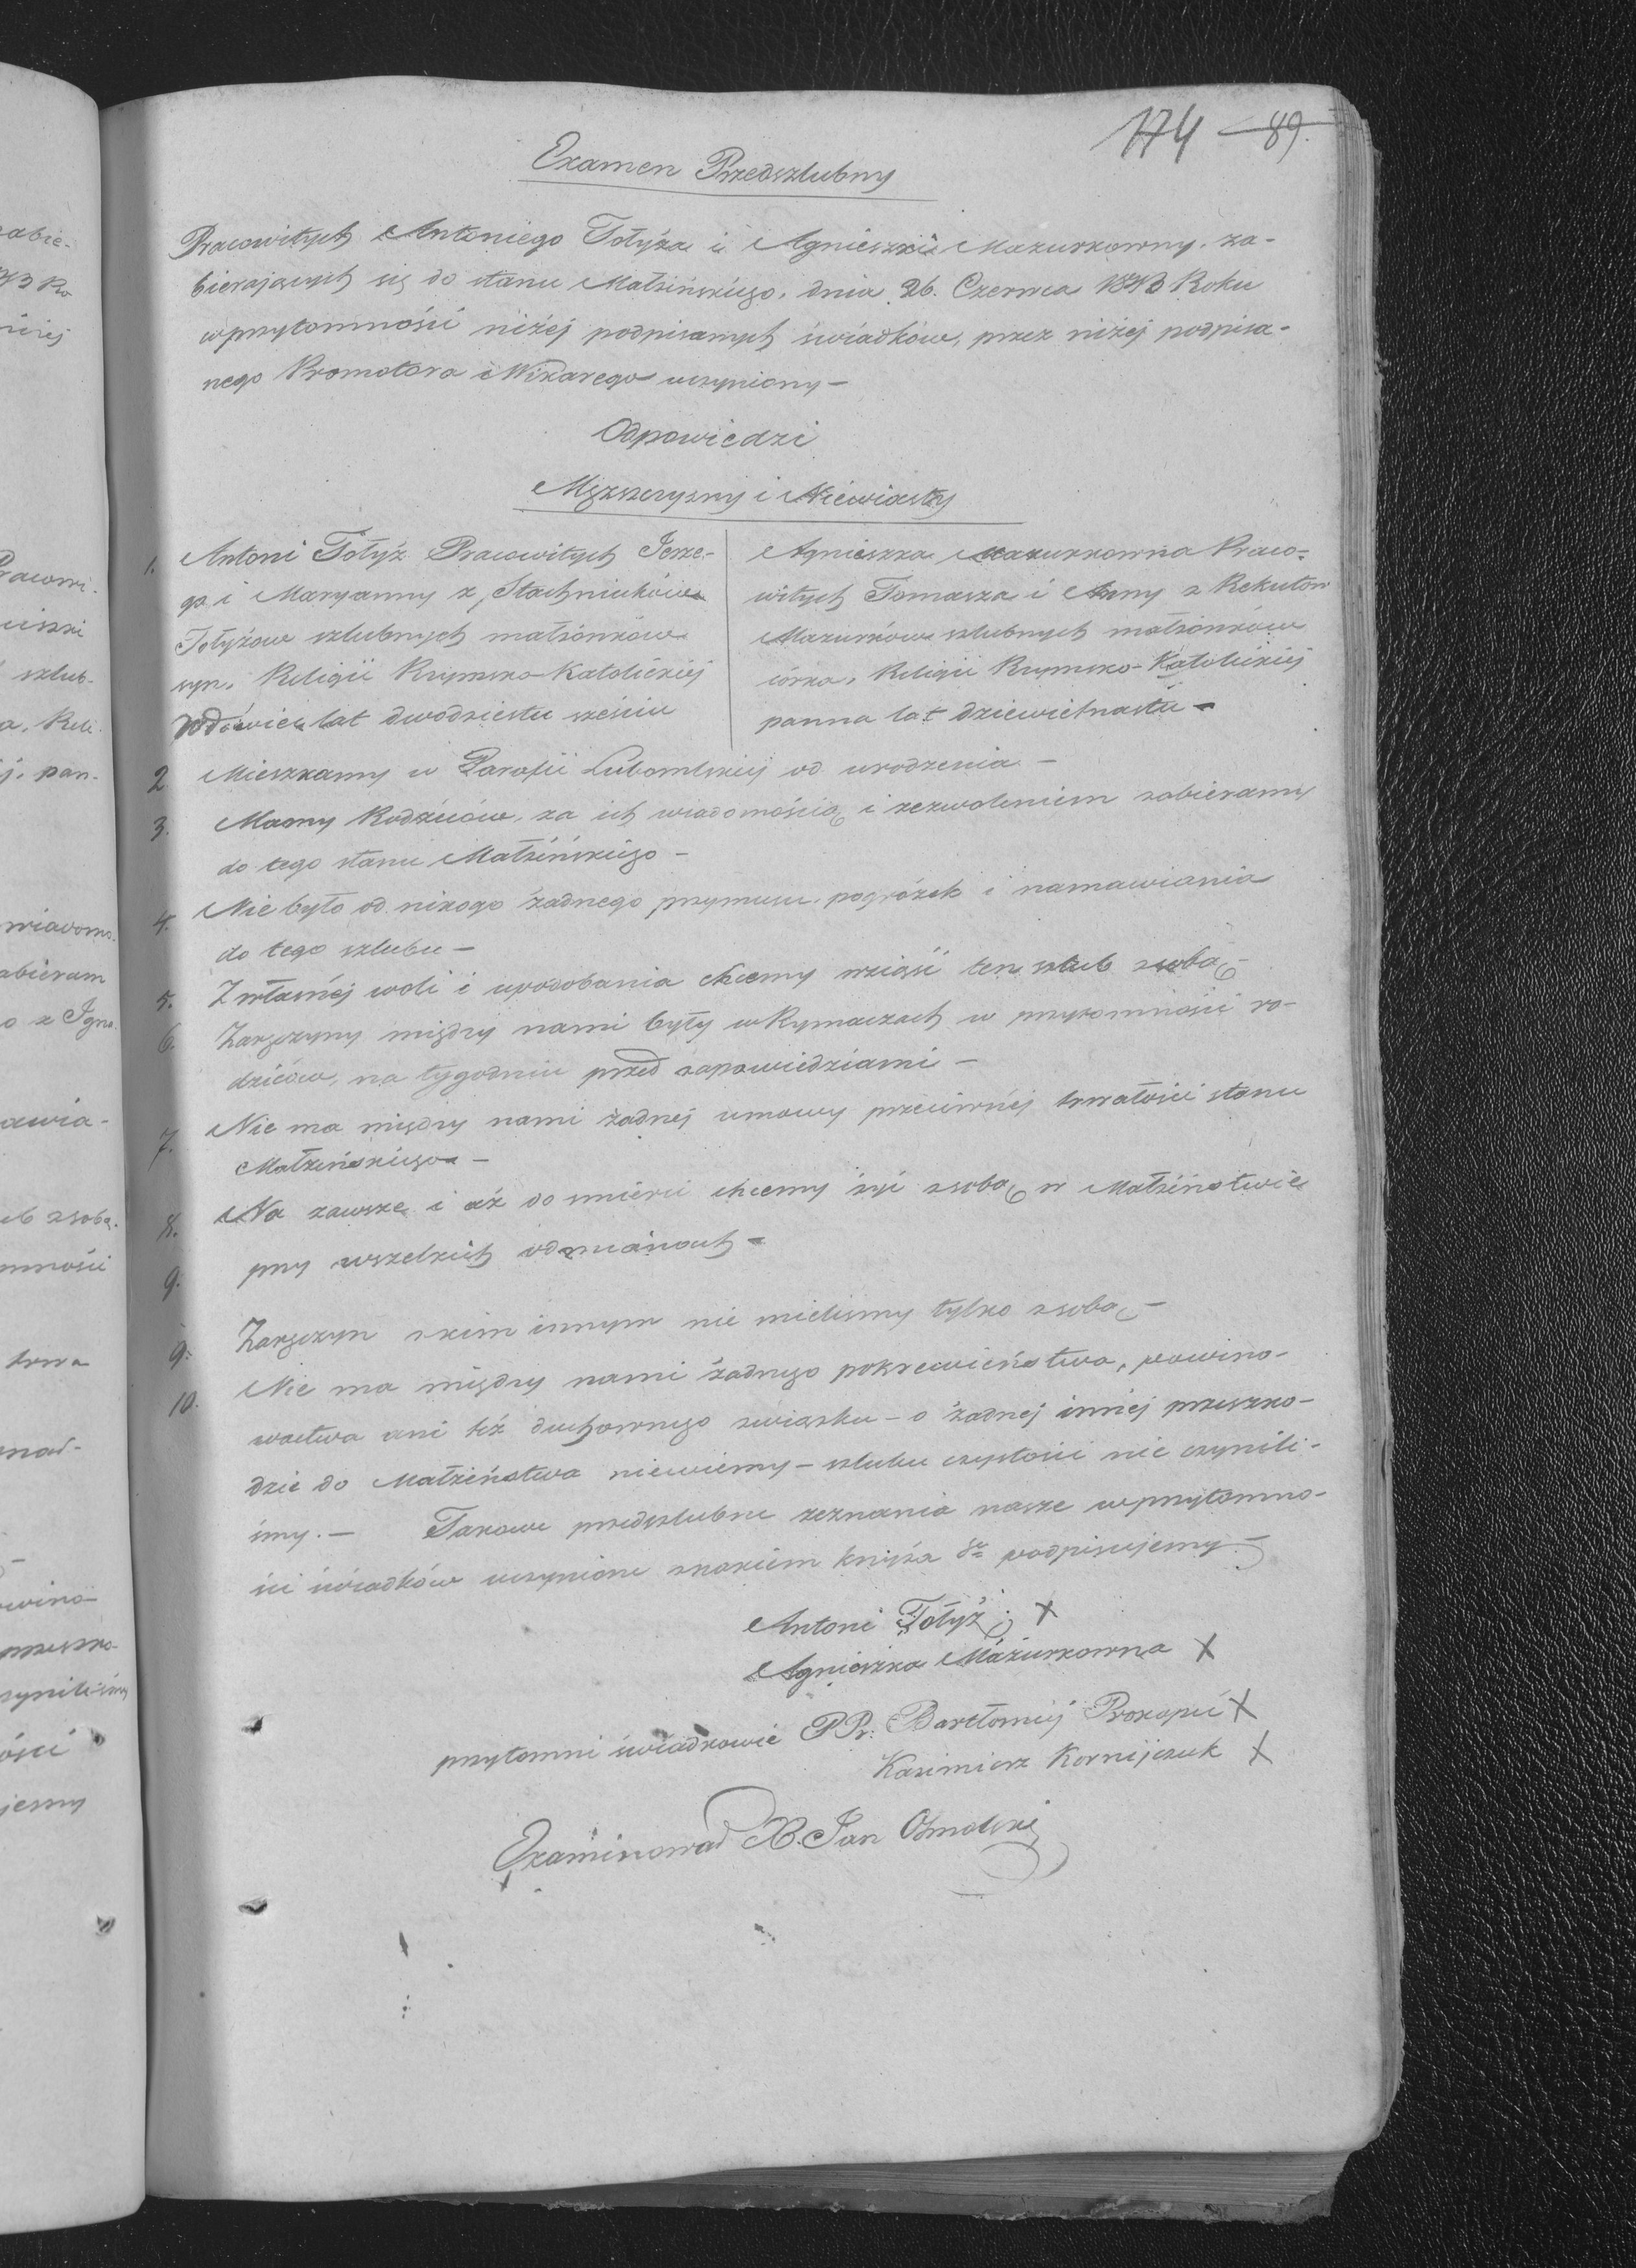 174 89.
Examen Przedszlubny
Pracowitych Antoniego Tołyża i Agnieszki Mazurkowny, za-
bierających się do stanu Małżińskiego, dnia 26. Czerwca 1843 Roku
w przytomności niżej podpisanych świadków, przez niżej podpisa-
nego Promotora i Wikarego uczyniony —
Odpowiedzi
Mężczyzny i Niewiasty
1. Antoni Tołyż Pracowitych Jerze-
go i Maryanny z Stachniuków
Tołyżow szlubnych małżonków
syn, Religii Rzymsko-Katolickiej
wdowiec lat dwodziestu sześciu
Agnieszka Mazurkowna Praco-
witych Tomasza i Anny z Rekutow
Mazurków szlubnych małżonków
córka, Religii Rzymsko-Katolickiej
panna lat dziewietnastu —
2. Mieszkamy w Parafii Lubomlskiej od urodzenia —
3. Mamy Rodziców, za ich wiadomością i zezwoleniem zabieramy
do tego stanu Małżińskiego —
4. Nie było od nikogo żadnego przymusu, pogróżek i namawiania
do tego szlubu —
5. Z własnéj woli i upodobania chcemy wziąść ten szlub z sobą —
6. Zaręczyny między nami były w Rymaczach w przytomności ro-
dziców, na tygodniu przed zapowiedziami —
7. Nie ma między nami żadnej umowy przeciwnéj trwałości stanu
Małżeńskiego —
8. Na zawsze i aż do śmierci chcemy żyć z sobą w Małżeństwie
9. przy wszelkich odmianach —
9. Zaręczyn z kim innym nie mielismy tylko z sobą —
10. Nie ma między nami żadnego pokrewieństwa, powino-
wactwa ani też duchownego związku — o żadnej innéj przeszko-
dzie do Małżeństwa niewiemy — szlubu czystości nie czynili-
śmy. — Takowe przedszlubne zeznania nasze w przytomno-
ści świadków uczynione znakiem krzyża Sgo podpisujemy —
Antoni Tołyż X
Agnieszka Mazurkowna X
przytomni świadkowie PPr: Bartłomiéj Prokopić X
Kazimierz Kornijczuk X
Examinował X. Jan Osmolski